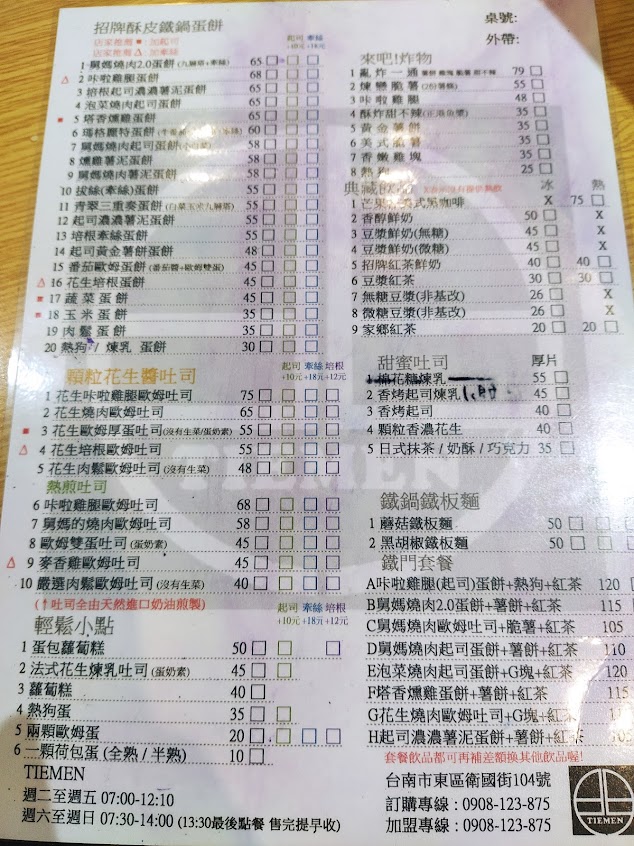 招牌酥皮鐵鍋蛋餅
店家推薦 ■ : 加起司
店家推薦 △ : 加牽絲
起司 牽絲
+10元 +18元
1 舅媽燒肉2.0蛋餅(九層塔+牽絲) 65
2 咔啦雞腿蛋餅 68
3 培根起司濃濃薯泥蛋餅 68
4 泡菜燒肉起司蛋餅 68
5 塔香燻雞蛋餅 55
6 瑪格麗特蛋餅 60
7 舅媽燒肉起司蛋餅 68
8 燻雞薯泥蛋餅 58
9 舅媽燒肉薯泥蛋餅 68
10 拔絲(牽絲)蛋餅 55
11 青翠三重奏蛋餅(白菜玉米九層塔) 55
12 起司濃濃薯泥蛋餅 55
13 培根牽絲蛋餅 55
14 起司黃金薯餅蛋餅 48
15 番茄歐姆蛋餅(番茄醬+歐姆雙蛋) 45
16 花生培根蛋餅 45
17 蔬菜蛋餅 45
18 玉米蛋餅 35
19 肉鬆蛋餅 35
20 熱狗 / 煉乳 蛋餅 30
顆粒花生醬吐司
起司 牽絲 培根
+10元 +18元 +12元
1 花生咔啦雞腿歐姆吐司 75
2 花生燒肉歐姆吐司 65
3 花生歐姆厚蛋吐司(沒有生菜/蛋奶素) 55
4 花生培根歐姆吐司 55
5 花生肉鬆歐姆吐司(沒有生菜) 48
熱煎吐司
6 咔啦雞腿歐姆吐司 68
7 舅媽的燒肉歐姆吐司 58
8 歐姆雙蛋吐司(蛋奶素) 45
9 麥香雞歐姆吐司 45
10 嚴選肉鬆歐姆吐司(沒有生菜) 40
(↑吐司全由天然進口奶油煎製)
輕鬆小點
起司 牽絲 培根
+10元 +18元 +12元
1 蛋包蘿蔔糕 50
2 法式花生煉乳吐司(蛋奶素) 45
3 蘿蔔糕 40
4 熱狗蛋 35
5 兩顆歐姆蛋 20
6 一顆荷包蛋(全熟 / 半熟) 10
TIEMEN
週二至週五 07:00-12:10
週六至週日 07:30-14:00 (13:30最後點餐 售完提早收)
桌號:
外帶:
來吧!炸物
1 亂炸一通 79
2 煉戀脆薯 55
3 咔啦雞腿 48
4 酥炸甜不辣 35
5 黃金薯餅 35
6 美式脆薯 35
7 香嫩雞塊 35
8 熱狗 25
典藏 冰 熱
1 X 75
2 香醇鮮奶 50 X
3 豆漿鮮奶(無糖) 45 X
4 豆漿鮮奶(微糖) 45 X
5 招牌紅茶鮮奶 40 40
6 豆漿紅茶 30 30
7 無糖豆漿(非基改) 26 X
8 微糖豆漿(非基改) 26 X
9 家鄉紅茶 20 20
甜蜜吐司 厚片
1 棉花糖煉乳 55
2 香烤起司煉乳 45
3 香烤起司 40
4 顆粒香濃花生 40
5 日式抹茶 / 奶酥 / 巧克力 35
鐵鍋鐵板麵
1 蘑菇鐵板麵 50
2 黑胡椒鐵板麵 50
鐵門套餐
A咔啦雞腿(起司)蛋餅+熱狗+紅茶 120
B舅媽燒肉2.0蛋餅+薯餅+紅茶 115
C舅媽燒肉歐姆吐司+脆薯+紅茶 105
D舅媽燒肉起司蛋餅+薯餅+紅茶 110
E泡菜燒肉起司蛋餅+G塊+紅茶 120
F塔香燻雞蛋餅+薯餅+紅茶 115
G花生燒肉歐姆吐司+G塊+紅茶 11
H起司濃濃薯泥蛋餅+薯餅+紅茶 105
套餐飲品都可再補差額換其他飲品喔!
台南市東區衛國街104號
訂購專線 : 0908-123-875
加盟專線 : 0908-123-875
TIEMEN